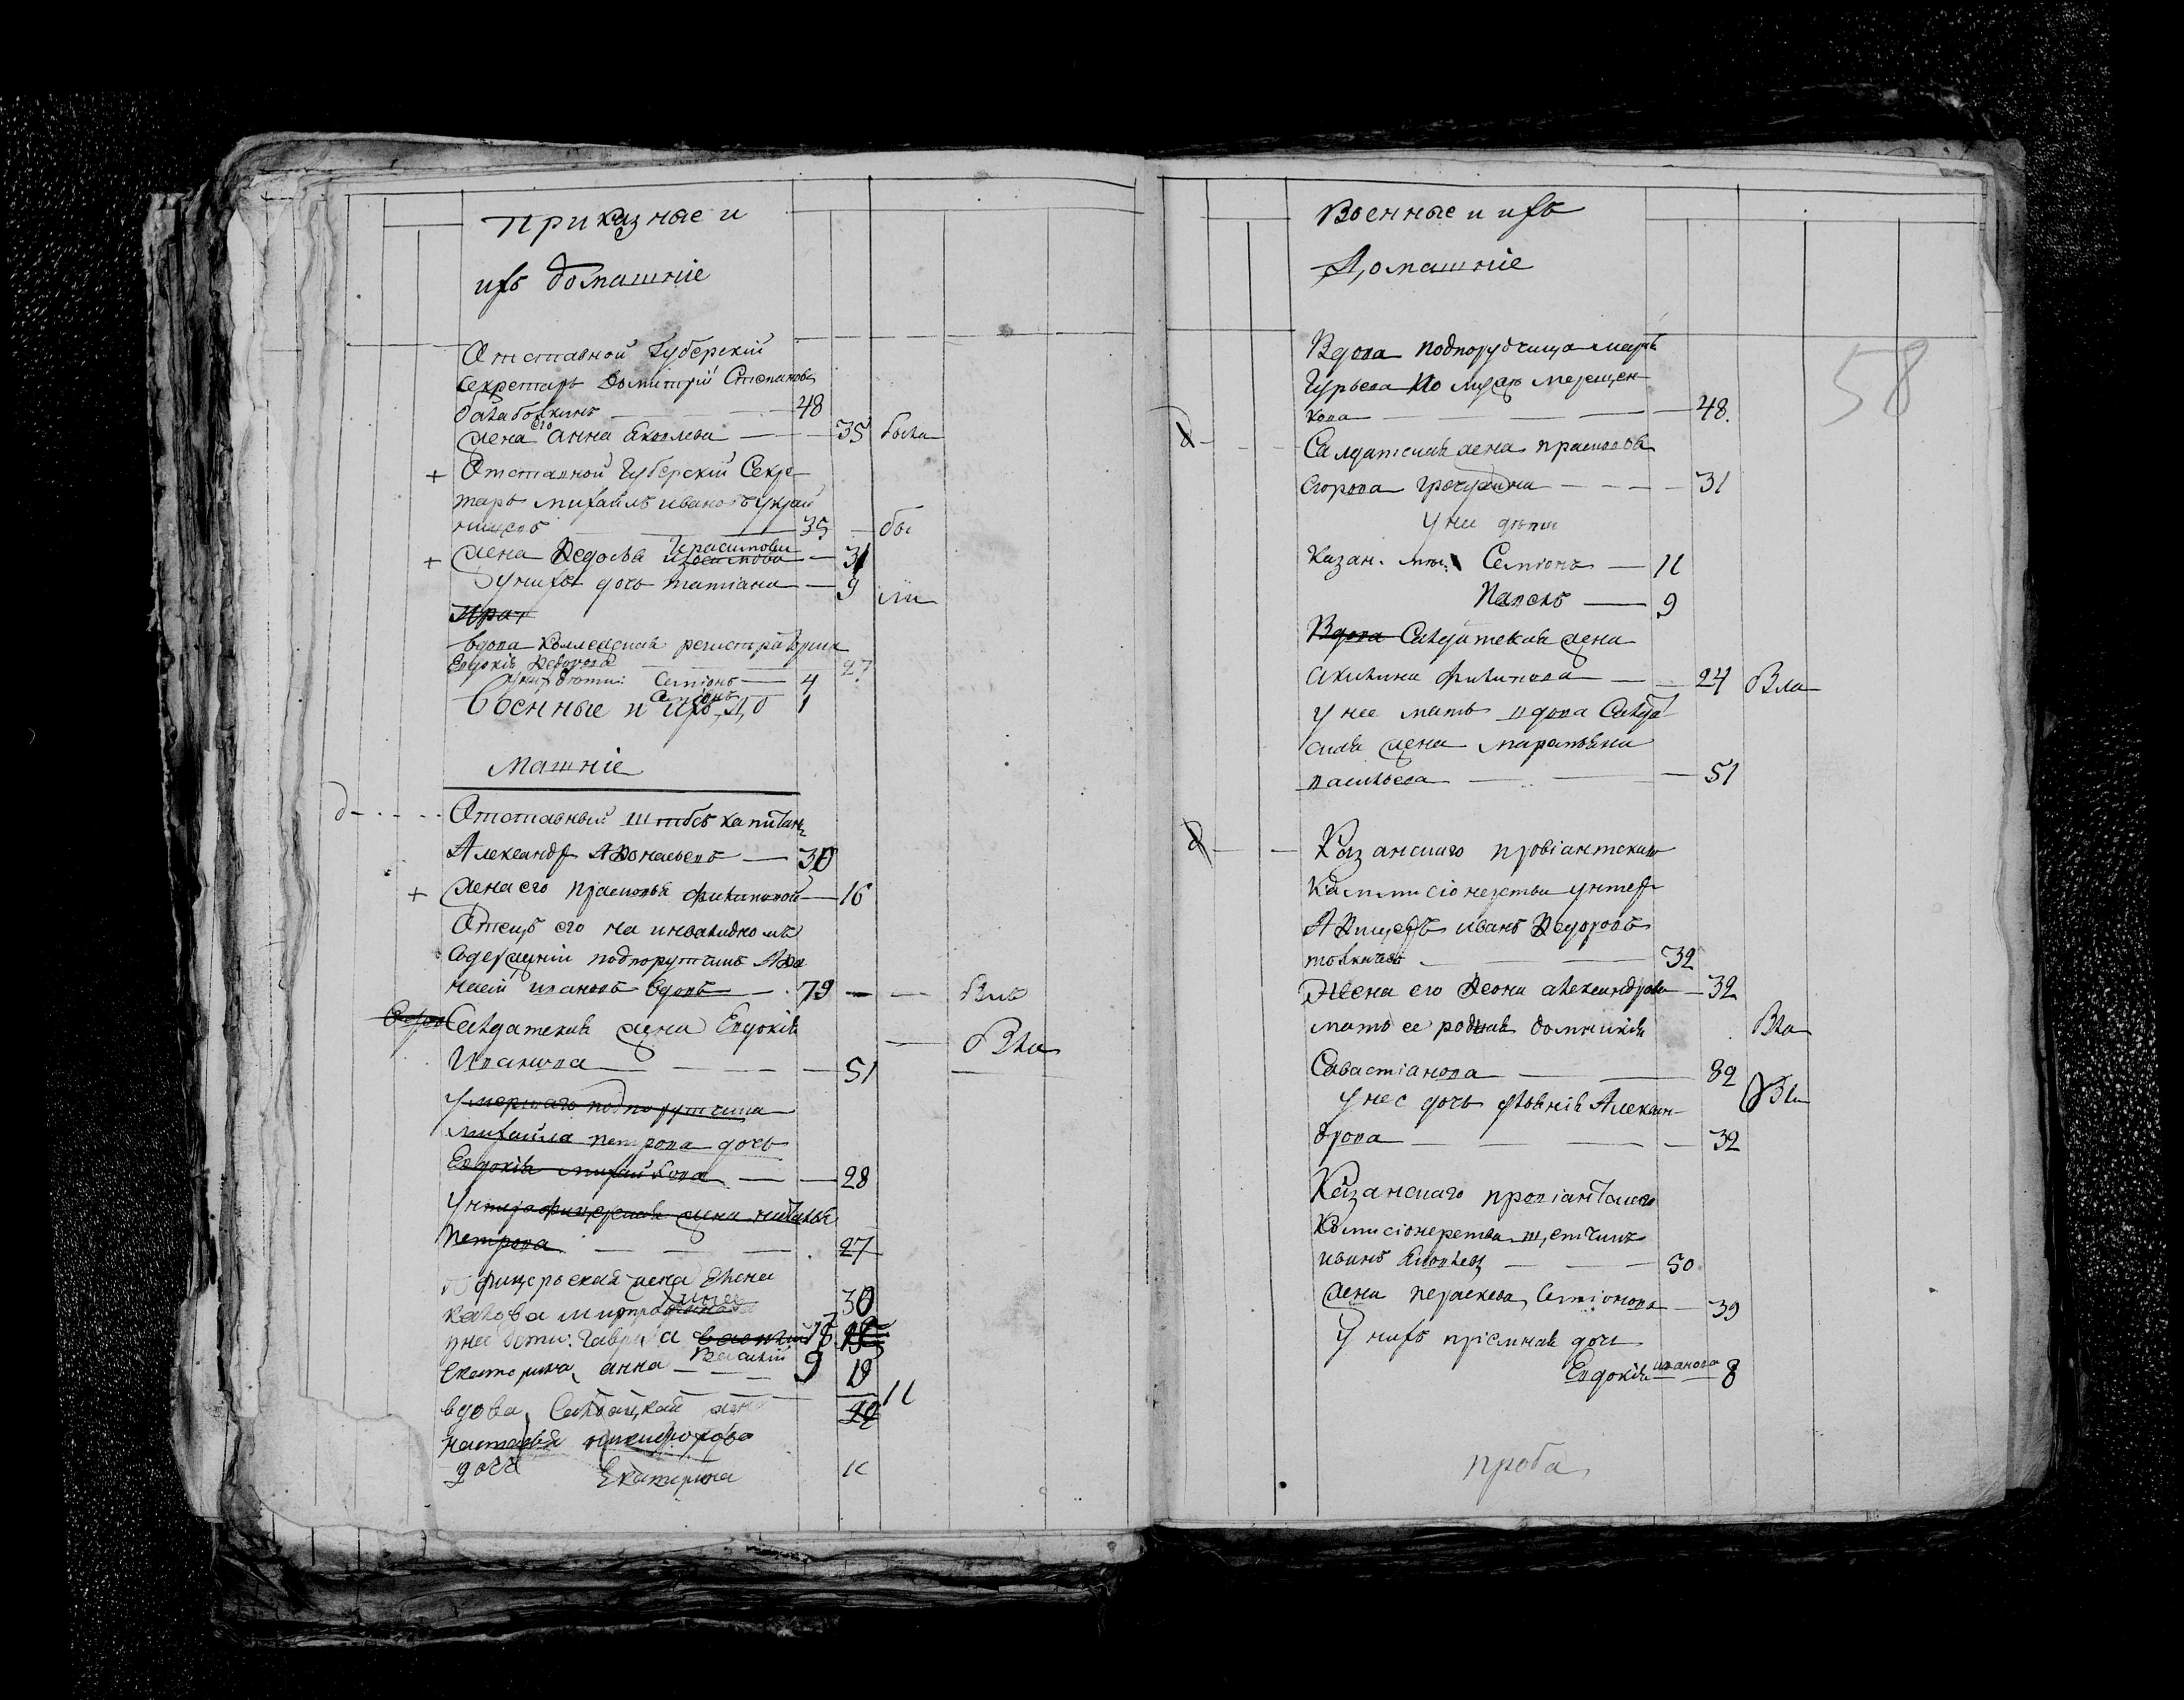 Приказные и
ихъ домашніе
Отставной Губерскій
секретарь Димитрій Степановъ
48
жена его Анна Яковлева — 35 была
+ Отставной Губерскій Секре-
тарь михаилъ ивановъ
35 — бы
+ жена Ѳедосья Герасимова — 31
у нихъ дочь татіана — 9
вдова Коллежская регистраторша
Евдокія Ѳедорова — 27
у ней дѣти: Семіонъ — 4
1
Военные и ихъ До
машніе
д - Отставный штабсъ капитанъ
Александр Аѳонасьевъ — 30
+ жена его прасковья филипповой — 16
Отецъ его на инвалидномъ
содержаніи подпорутчикъ Аѳа
насій ивановъ вдовъ — 79 — Былъ
Салдатская жена Евдокія
Иванова — 51 — Была
Умершаго подпорутчика
михаила петрова дочь
Евдокія михайлова — 28
Унтерафицерская жена наталья
петрова — 27
фицерьская жена Елена
30
у нее дети: Гаврила 18
Екатерина, анна — Василий 9 19
вдова, Салдацкая жена
настасья никифорова
дочь Екатерина 11
Военные и ихъ
Домашніе
58
Вдова подпорутчица марья
Гурьева по мужю
кова — 48.
Салдатская жена прасковья
Егорова — 31
У ней дѣти
Казан. Семіонъ — 11
Павелъ — 9
Вдова Салдатская жена
акилина филипова — 24 Была
у нее мать вдова Салда
ская жена
васильева — 51
Казанскаго провіантскаго
Каммисіонерства унтер
Афицеръ иванъ Ѳедоровъ
32
Жена его Ѳеона александрова — 32
мать ее родная домникія Была
Савастіанова — 82
у нее дочь Алексан- Была
дрова — 32
Казанскаго провіантскаго
Комисіонерства
иванъ Яковлев — 50
жена параскева Семіонова — 39
У нихъ пріемная дочь
Евдокія иванова — 8
проба